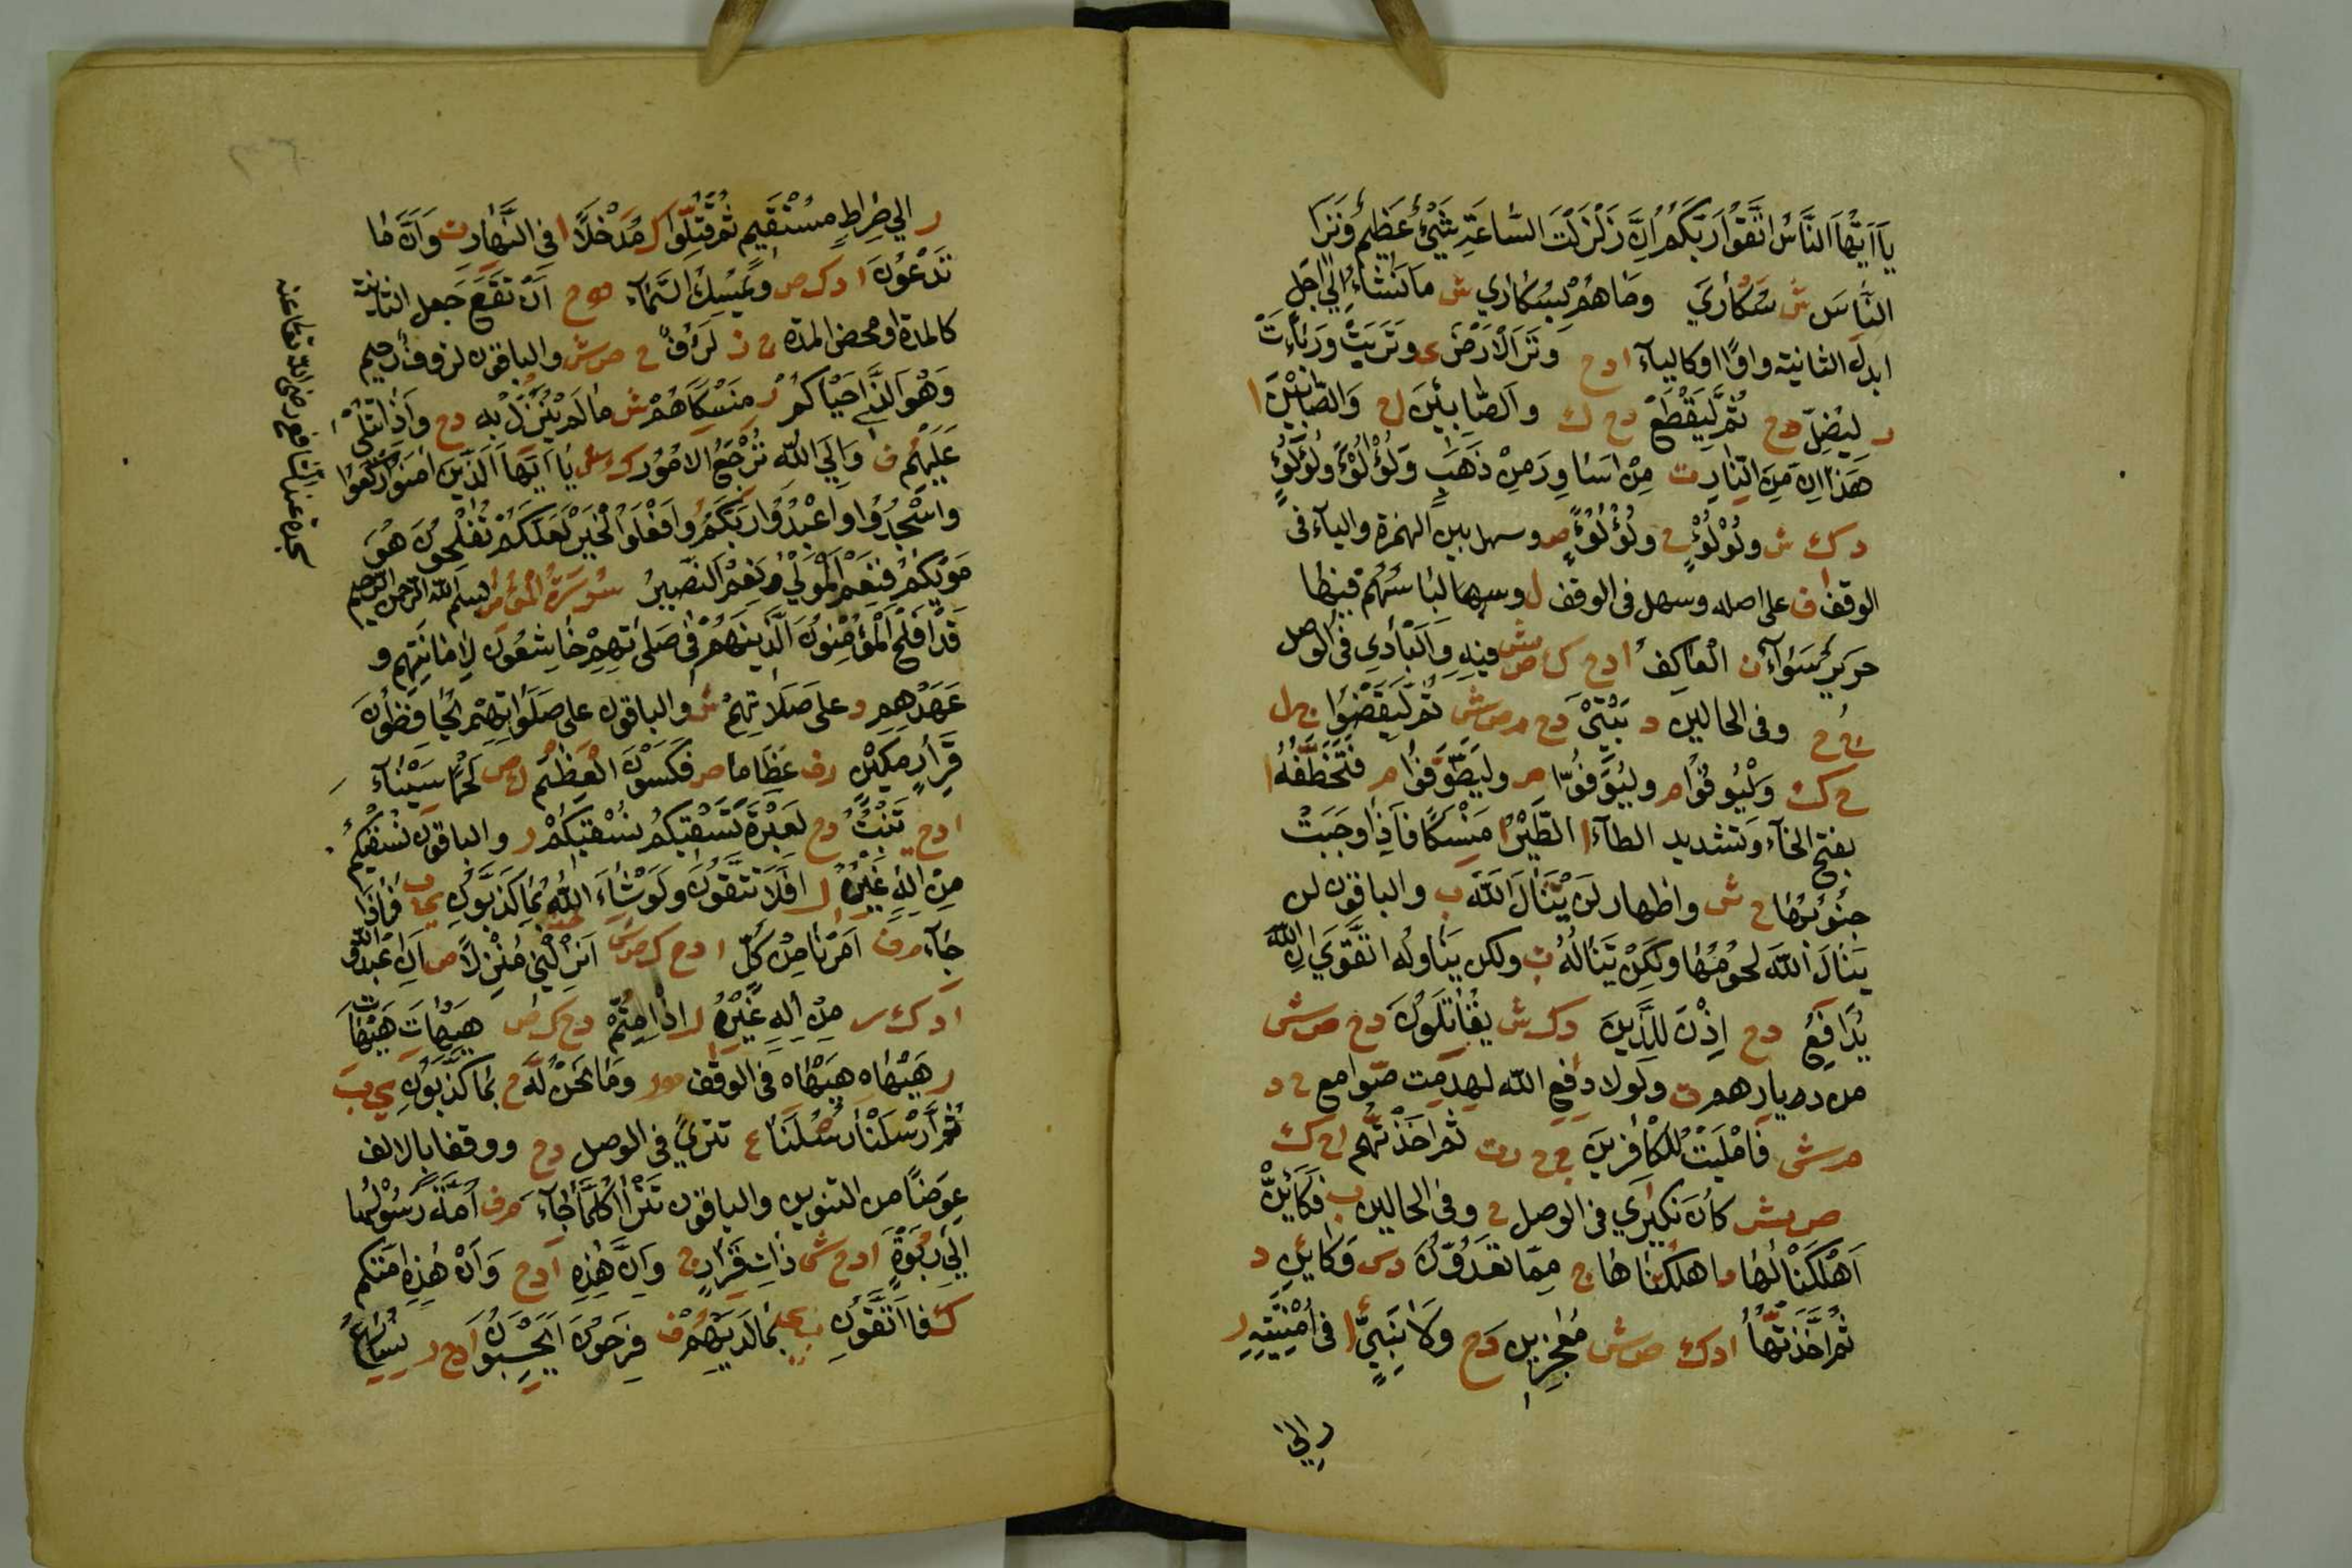 يَا اَيُّهَا النَّاسُ اتَّقُوا رَبَّكُمْ اِنَّ زَلْزَلَتَ السَّاعَةِ شَيْئٌ عَظِيمٌ وَتَرَا
النَّاسَ ش سُكَارَي وَمَا هُمْ بِسُكَارَي ش مَا نَشَاءُ اِلَي اَجَلٍ
ابدل الثانية واوًا او كالياء ا د ح وَتَرَا لْاَرْضَ ى وَتَرَبَتْ وَرَبَاءَتْ
ر لِيَضِلَّ د ح ثُمَّ لِيَقْطَعْ د ح ك وَالصَّابِئِينَ ل ح وَالصَّابِيْنَ ا
هَذَا اِن مِنَ النَّارِ ت مِنْ اَسَاوِرَ مِنْ ذَهَبٍ وَلُؤْلُؤًا وَلُؤْلُؤٍ
د ك ش وَلُوْلُؤٍ ح وَلُؤْلُؤًا ص وسهل بين الهمزة والياء فى
الوقف ف على اصله وسهل فى الوقف ل وسهما لِبَاسُهُمْ فِيهَا
حَرِيرٌ سَوَآءٌ ن الْعَاكِفُ ا د ح ك ص ش فِيهِ وَالْبَادِي فى الوصل
ج ح وفى الحالين د بَيْتِيْ د ح م ص ش ثُمَّ لِيَقْضُوا ج ل
ح ك وَلْيُوفُوْا م وَلِيُوَفُّوا ص وَلْيَطَّوَّفُوا م فَتَخَطَّفُهُ ا
بفتح الخآء وتشديد الطآء ا الطَّيْرُ مَنْسِكًا فَاِذَا وَجَبَتْ
جُنُوبُهَا ح ش واظهار لَنْ يَّنَالَ اللّٰهَ ب والباقون لن
يَنَالَ اللّٰهَ لُحُومُهَا وَلَكِنْ يَنَالُهُ ب ولكن يناوله التَّقْوَي اِنَّ اللّٰهَ
يُدَافِعُ د ح اِذْنَ لِلَّذِينَ د ك ش يُقَاتَلُونَ د ح ص ش
من دديارهم ت ولولا دَفْعُ الله لهدمت صّوامع ح د
م ش فَاَمْلَيْتُ لِلْكَافِرِينَ ج ح ر ت ثُمَّ اَخَذْتُهُمْ ا ح ك
ص ش كَانَ نَكِيرِي فى الوصل ج وفى الحالين ب فَكَاَيِّنْ
اَهْلَكْنَاهَا د اهلكتها ح مِمَّا تَعُدُّوْنَ د ش وَكَائِنْ د
ثُمَّ اَخَذْتُهَا ا د ك ص ش مُعْجِزِين د ح وَلَا نَبِيٍّ ا فى اُمْنِيَّتِهِ ر
ر الي
ر اِلي صِرَاطٍ مُسْتَقِيمٍ ثُمَّ قُتِّلُوا ك مَدْخَلًا ا فِى النَّهَارِ ت وَاَنَّ مَا
تَدْعُونَ ا د ك ص وَيُمْسِكُ السَّمَآءَ اَنْ تَقَعَ جعل الثانية
كالمدة او محض المدة ج ز لَرَؤُفٌ ح ص ش والباقون لَرَؤُوفٌ رَحِيم
وَهُوَ الَّذِي اَحْيَاكُمْ ر مَنْسِكًا هُمْ ش مَا لَمْ يُنْزِلْ بِهِ د ح وَاِذَا تُتْلَى
عَلَيْهُمْ ف وَاِلَي اللّٰهِ تُرْجَعُ الْاُمُوْر ك ش يَا اَيُّهَا الَّذِينَ اٰمَنُوا ارْكَعُوا
وَاسْجُدُوا وَاعْبُدُوا رَبَّكُمْ وَافْعَلُوا الْخَيْرَ لَعَلَّكُمْ تُفْلِحُونَ هُوَ
مَوْلَيكُمْ فَنِعْمَ الْمَوْلَي وَنِعْمَ النَّصِيرُ سُورَةُ الْمُؤْمِنِ بسم الله الرحمن الرحيم
قَدْ اَفْلَحَ الْمُؤْمِنُونَ الَّذِينَ هُمْ فى صَلَاتِهِمْ خَاشِعُونَ لِاَمَانَتِهِمْ و
عَهْدِهِمْ د على صَلَاتِهِمْ ش والباقون على صَلَوَاتِهِمْ يُحَافِظُونَ
قَرَارٍ مَكِينٍ ر ف عَظَامًا ص فَكَسَوْنَ الْعَظْمَ ك ص لَحْمًا سِيْنَآءَ
ا د ح تَنْبُتُ د ح لَعِبْرَةً نَسْقِيكُمْ نُسْقِيكُمْ ر والباقون نُسْقِيكُمْ
مِنْ اِلٰهٍ غَيْرُهُ ل اَفَلَا تَتَّقُونَ وَلَوْ شَاءَ اللّٰهُ بِمَا كَذَّبُونِ ى ب فَاِذَا
جَآءَ م ف اَمْرُنَا مِنْ كُلِّ ا د ح ك ص ش اَنْزِلْنِي مُنْزَلًا ص اَنِ اعْبُدُوا اللّٰهَ
ا د ك ر مِنْ اِلٰهٍ غَيْرُهُ ل اِذَا مِتُّمْ د ح ك ص هَيْهَاتَ هَيْهَاتَ
ر هَيْهَاه هَيْهَاه فى الوقف وَمَا نَحْنُ لَهُ ح بِمَا كَذَّبُونِ ى ب
ثُمَّ اَرْسَلْنَا رُسُلَنَا ع تَتْرًي فى الوصل د ح ووقفا بالالف
عِوَضًا من التنوين والباقون تَتْرَا كُلَّمَا جَآءَ م ف اُمَّةً رَسُولُهَا
اِلَي رُبْوَةٍ ا د ح ش ذَاتِ قَرَارٍ ح وَاَنَّ هٰذِهِ ا د ح وَاَنْ هٰذِهِ اُمَّتُكُمْ
ك فَاتَّقُونِ ب ى بِمَا لَدَيْهُمْ ف فَرِحُونَ اَيَحْسِبُونَ ا د ح ر نُسَارِعُ
سجدة عند الشافعى رضى الله تعالى عنه